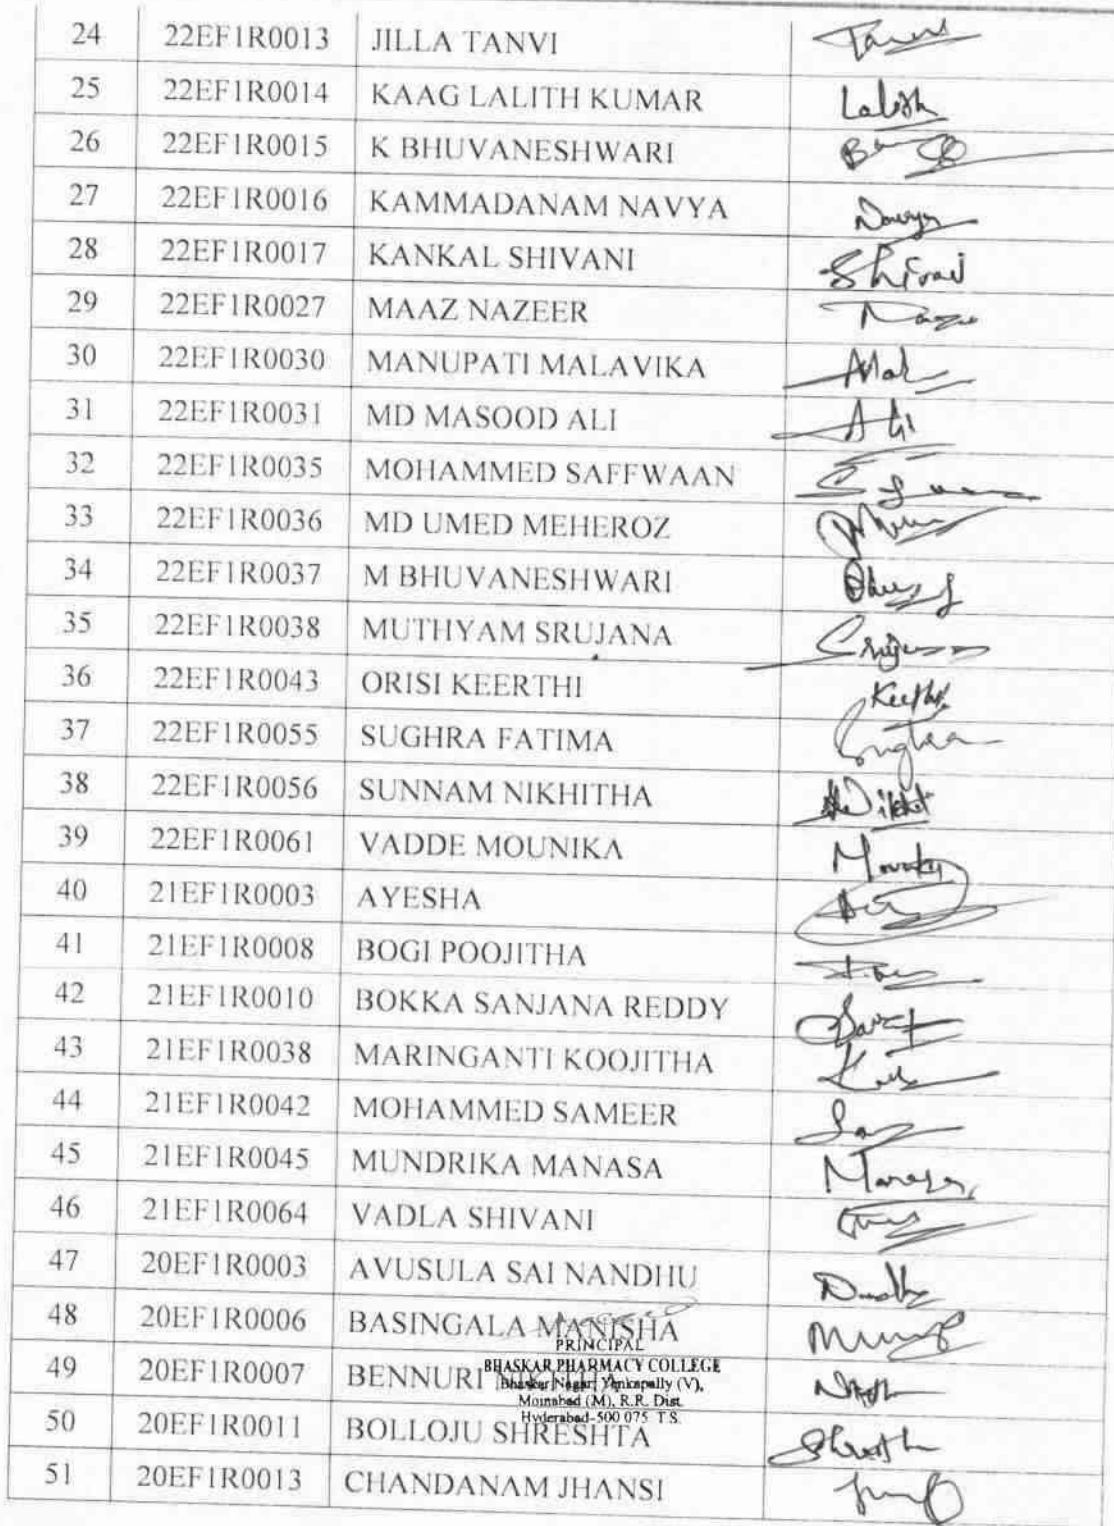 24 22EF1R0013 JILLA TANVI Tanvi
25 22EF1R0014 KAAG LALITH KUMAR Lalith
26 22EF1R0015 K BHUVANESHWARI
27 22EF1R0016 KAMMADANAM NAVYA Navya
28 22EF1R0017 KANKAL SHIVANI Shivani
29 22EF1R0027 MAAZ NAZEER
30 22EF1R0030 MANUPATI MALAVIKA
31 22EF1R0031 MD MASOOD ALI Ali
32 22EF1R0035 MOHAMMED SAFFWAAN
33 22EF1R0036 MD UMED MEHEROZ
34 22EF1R0037 M BHUVANESHWARI
35 22EF1R0038 MUTHYAM SRUJANA
36 22EF1R0043 ORISI KEERTHI Keerthi
37 22EF1R0055 SUGHRA FATIMA Sughra
38 22EF1R0056 SUNNAM NIKHITHA
39 22EF1R0061 VADDE MOUNIKA
40 21EF1R0003 AYESHA
41 21EF1R0008 BOGI POOJITHA
42 21EF1R0010 BOKKA SANJANA REDDY
43 21EF1R0038 MARINGANTI KOOJITHA
44 21EF1R0042 MOHAMMED SAMEER
45 21EF1R0045 MUNDRIKA MANASA Manasa
46 21EF1R0064 VADLA SHIVANI
47 20EF1R0003 AVUSULA SAI NANDHU
48 20EF1R0006 BASINGALA MANISHA
PRINCIPAL
49 20EF1R0007 BENNURI
BHASKAR PHARMACY COLLEGE
Bhaskar Nagar, Yenkapally (V),
Moinabad (M), R.R. Dist.
Hyderabad-500 075 T.S.
50 20EF1R0011 BOLLOJU SHRESHTA
51 20EF1R0013 CHANDANAM JHANSI